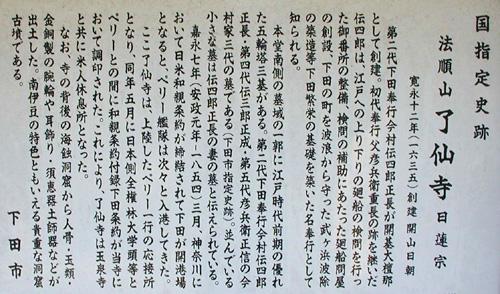 国指定史跡
法順山 了仙寺 日蓮宗
寛永十二年(一六三五)創建 開山日朝
第二代下田奉行今村伝四郎正長が開基大檀那
として創建。初代奉行父彦兵衛重長の跡を継いだ
伝四郎は、江戸への上り下りの廻船の検問を行っ
た御番所の整備、検問の補助にあたった廻船問屋
の創設、下田の町を波浪から守った武ヶ浜波除
の築造等下田繁栄の基礎を築いた名奉行として
知られる。
本堂南側の墓域の一郭に江戸時代前期の優れ
た五輪塔三基がある。第二代下田奉行今村伝四郎
正長、第四代伝三郎正成、第五代彦兵衛正信の今
村家三代の墓である(下田市指定史跡)。並んでいる
小さな墓は伝四郎正長の妻の墓と伝えられている。
嘉永七年(安政元年・一八五四)三月、神奈川に
おいて日米和親条約が締結されて下田が開港場
となると、ペリー艦隊は次々と入港してきた。
ここ了仙寺は、上陸したペリー一行の応接所
となり、同年五月に日本側全権林大学頭等と
ペリーとの間に和親条約付録下田条約が当寺に
おいて調印された。これにより、了仙寺は玉泉寺
と共に米人休息所となった。
なお 寺の背後の海蝕洞窟から人骨・玉類・
金銅製の腕輪や耳飾り・須恵器土師器などが
出土した。南伊豆の特色ともいえる貴重な洞窟
古墳である。
下田市